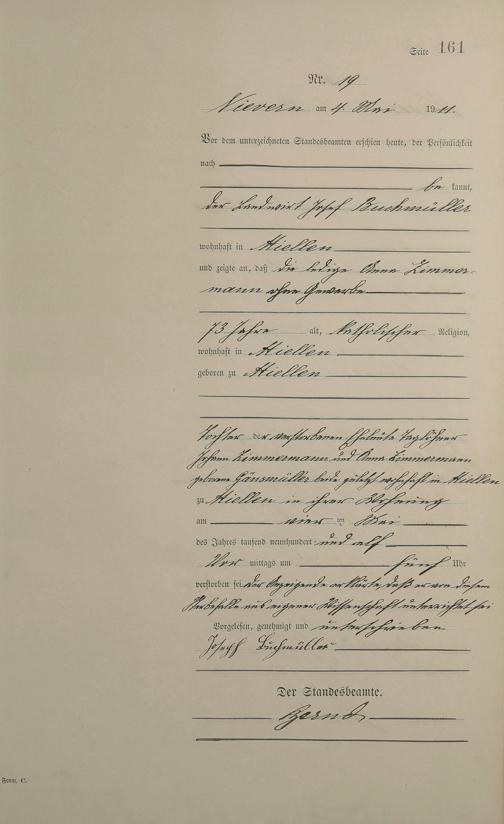 Seite 161
Nr. 19
Nievern am 4. Mai 1911.
Vor dem unterzeichneten Standesbeamten erschien heute, der Persönlichkeit
nach
be kannt,
der Landwirt Josef Buchmüller
wohnhaft in Miellen
und zeigte an, daß die ledige Anna Zimmer-
mann ohne Gewerbe
73 Jahre alt, katholischer Religion,
wohnhaft in Miellen
geboren zu Miellen
Tochter der verstorbenen Eheleute Taglöhner
Johann Zimmermann und Anna Zimmermann
geborene Gänsmüller beide zuletzt wohnhaft in Miellen
zu Miellen in ihrer Wohnung
am vier ten Mai
des Jahres tausend neunhundert und elf
Vor mittags um fünf Uhr
verstorben sei. Der Anzeigende erklärte, daß er von diesem
Sterbefalle aus eigener Wissenschaft unterrichtet sei
Vorgelesen, genehmigt und unterschrieben
Joseph Buchmüller
Der Standesbeamte.
Form. C.